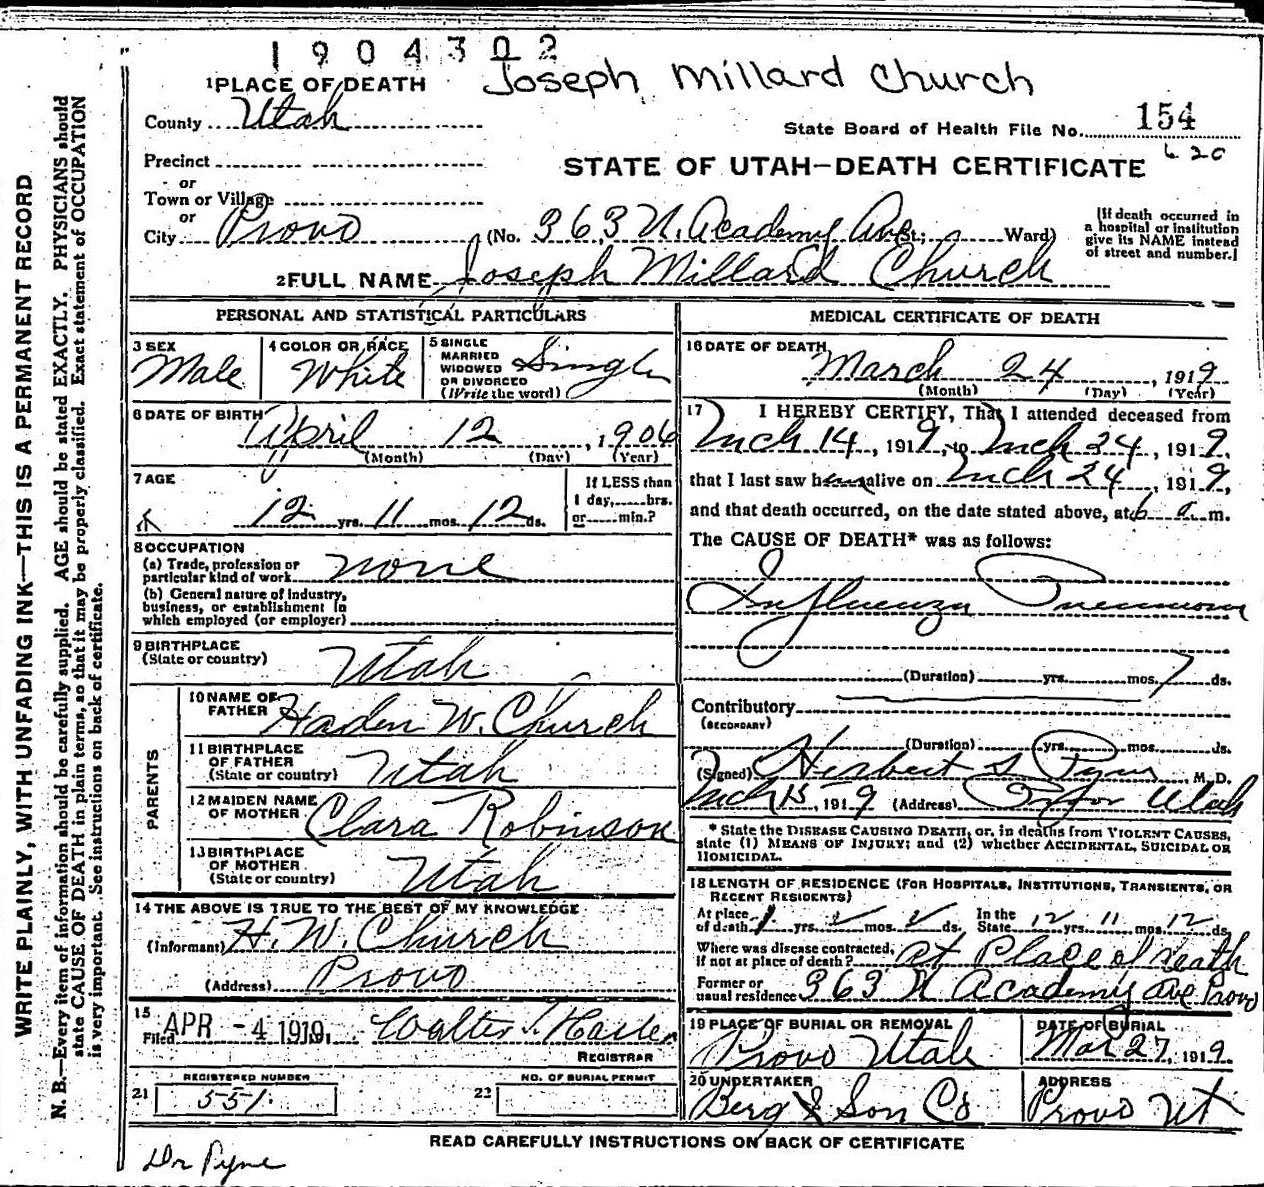 1904302
Joseph Millard Church
1 PLACE OF DEATH
County Utah
State Board of Health File No. 154
620
Precinct
STATE OF UTAH—DEATH CERTIFICATE
or
Town or Village
or
City Provo (No. 363 N. Academy Ave St.; Ward)
[If death occurred in a hospital or institution give its NAME instead of street and number.]
2 FULL NAME Joseph Millard Church
PERSONAL AND STATISTICAL PARTICULARS
3 SEX Male
4 COLOR OR RACE White
5 SINGLE MARRIED WIDOWED OR DIVORCED (Write the word) Single
6 DATE OF BIRTH April 12, 1906
(Month) (Day) (Year)
7 AGE
12 yrs. 11 mos. 12 ds.
If LESS than 1 day, hrs. or min.?
8 OCCUPATION
(a) Trade, profession or particular kind of work none
(b) General nature of industry, business, or establishment in which employed (or employer)
9 BIRTHPLACE
(State or country) Utah
PARENTS
10 NAME OF FATHER Haden W. Church
11 BIRTHPLACE OF FATHER (State or country) Utah
12 MAIDEN NAME OF MOTHER Clara Robinson
13 BIRTHPLACE OF MOTHER (State or country) Utah
14 THE ABOVE IS TRUE TO THE BEST OF MY KNOWLEDGE
(Informant) H. W. Church
(Address) Provo
15 Filed APR -4 1919, Walter T. Hasler
REGISTRAR
REGISTERED NUMBER
21 551
NO. OF BURIAL PERMIT
22
MEDICAL CERTIFICATE OF DEATH
16 DATE OF DEATH
March 24, 1919
(Month) (Day) (Year)
17 I HEREBY CERTIFY, That I attended deceased from
Mch 14, 1919, to Mch 24, 1919,
that I last saw him alive on Mch 24, 1919,
and that death occurred, on the date stated above, at 6 a.m.
The CAUSE OF DEATH* was as follows:
Influenza Pneumonia
(Duration) yrs. mos. 7 ds.
Contributory
(SECONDARY)
(Duration) yrs. mos. ds.
(Signed) Herbert S. Pyne M.D.
Mch 15, 1919 (Address) Provo Utah
* State the DISEASE CAUSING DEATH, or, in deaths from VIOLENT CAUSES, state (1) MEANS OF INJURY; and (2) whether ACCIDENTAL, SUICIDAL OR HOMICIDAL.
18 LENGTH OF RESIDENCE (FOR HOSPITALS, INSTITUTIONS, TRANSIENTS, OR RECENT RESIDENTS)
At place of death yrs. mos. ds. In the State 12 yrs. 11 mos. 12 ds.
Where was disease contracted, if not at place of death? at Place of death
Former or usual residence 363 N Academy Ave Provo
19 PLACE OF BURIAL OR REMOVAL
Provo Utah
DATE OF BURIAL
Mar 27, 1919.
20 UNDERTAKER
Berg & Son Co
ADDRESS
Provo Ut
READ CAREFULLY INSTRUCTIONS ON BACK OF CERTIFICATE
Dr Pyne
WRITE PLAINLY, WITH UNFADING INK—THIS IS A PERMANENT RECORD
N. B.—Every item of information should be carefully supplied. AGE should be stated EXACTLY. PHYSICIANS should
state CAUSE OF DEATH in plain terms, so that it may be properly classified. Exact statement of OCCUPATION
is very important. See instructions on back of certificate.